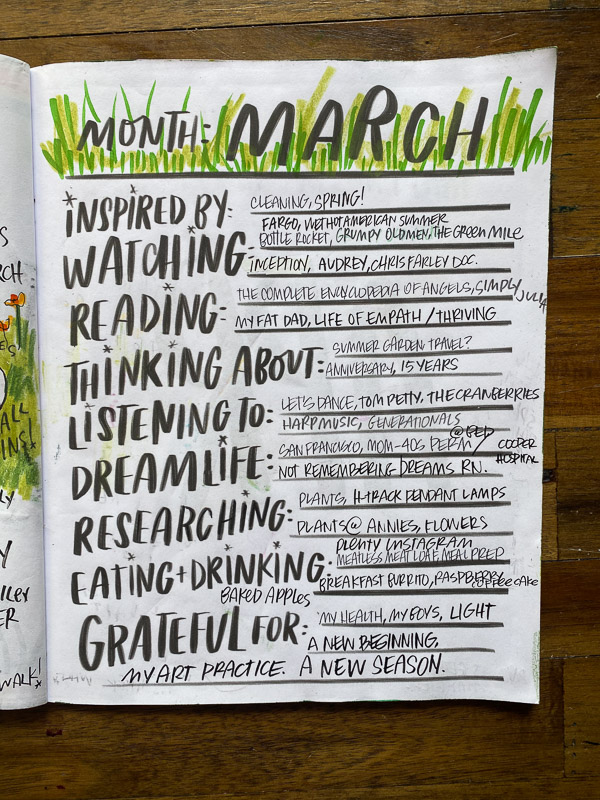 MONTH: MARCH
INSPIRED BY: CLEANING, SPRING!
FARGO, WETHOTAMERICAN SUMMER
BOTTLE ROCKET, GRUMPY OLD MEN, THE GREEN MILE
WATCHING: INCEPTION, AUDREY, CHRIS FARLEY DOC.
THE COMPLETE ENCYCLOPEDIA OF ANGELS, SIMPLY JULIA
READING: MY FAT DAD, LIFE OF EMPATH / THRIVING
SUMMER GARDEN, TRAVEL?
THINKING ABOUT: ANNIVERSARY, 15 YEARS
LET'S DANCE, TOM PETTY, THE CRANBERRIES
LISTENING TO: HARP MUSIC, GENERATIONALS
SAN FRANCISCO, MOM-40S PERM / @ COOPER HOSPITAL
DREAM LIFE: NOT REMEMBERING DREAMS RN.
PLANTS, H-TRACK PENDANT LAMPS
RESEARCHING: PLANTS @ ANNIES, FLOWERS
PLENTY INSTAGRAM
MEATLESS MEAT LOAF, MEAL PREP
EATING + DRINKING: BREAKFAST BURRITO, RASPBERRY COFFEE CAKE
BAKED APPLES
GRATEFUL FOR: MY HEALTH, MY BOYS, LIGHT
A NEW BEGINNING,
MY ART PRACTICE. A NEW SEASON.
ALL
WALK!